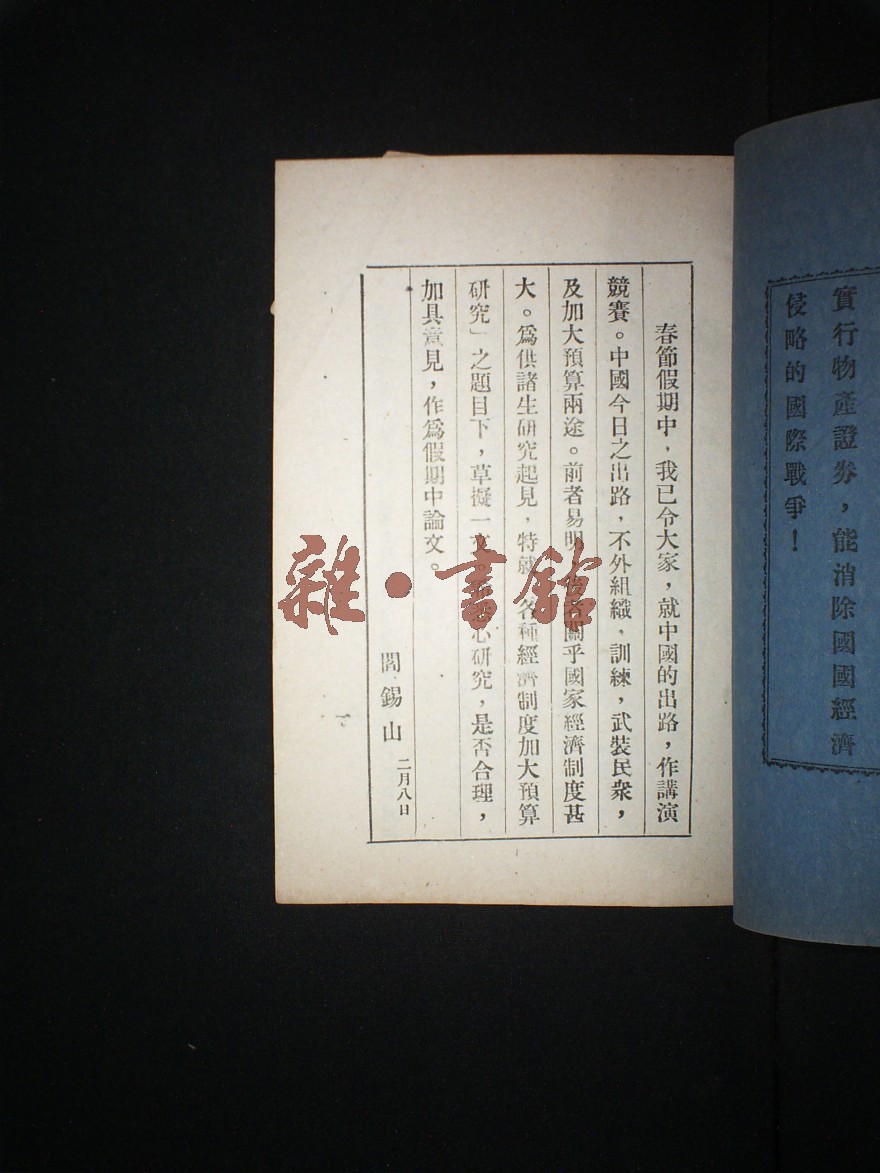 實行物產證券，能消除國國經濟
侵略的國際戰爭！
春節假期中，我已令大家，就中國的出路，作講演
競賽。中國今日之出路，不外組織，訓練，武裝民衆，
及加大預算兩途。前者易明，後者關乎國家經濟制度甚
大。爲供諸生研究起見，特就「各種經濟制度加大預算
研究」之題目下，草擬一文。心研究，是否合理，
加具意見，作爲假期中論文。
閻錫山 二月八日
雜·書館